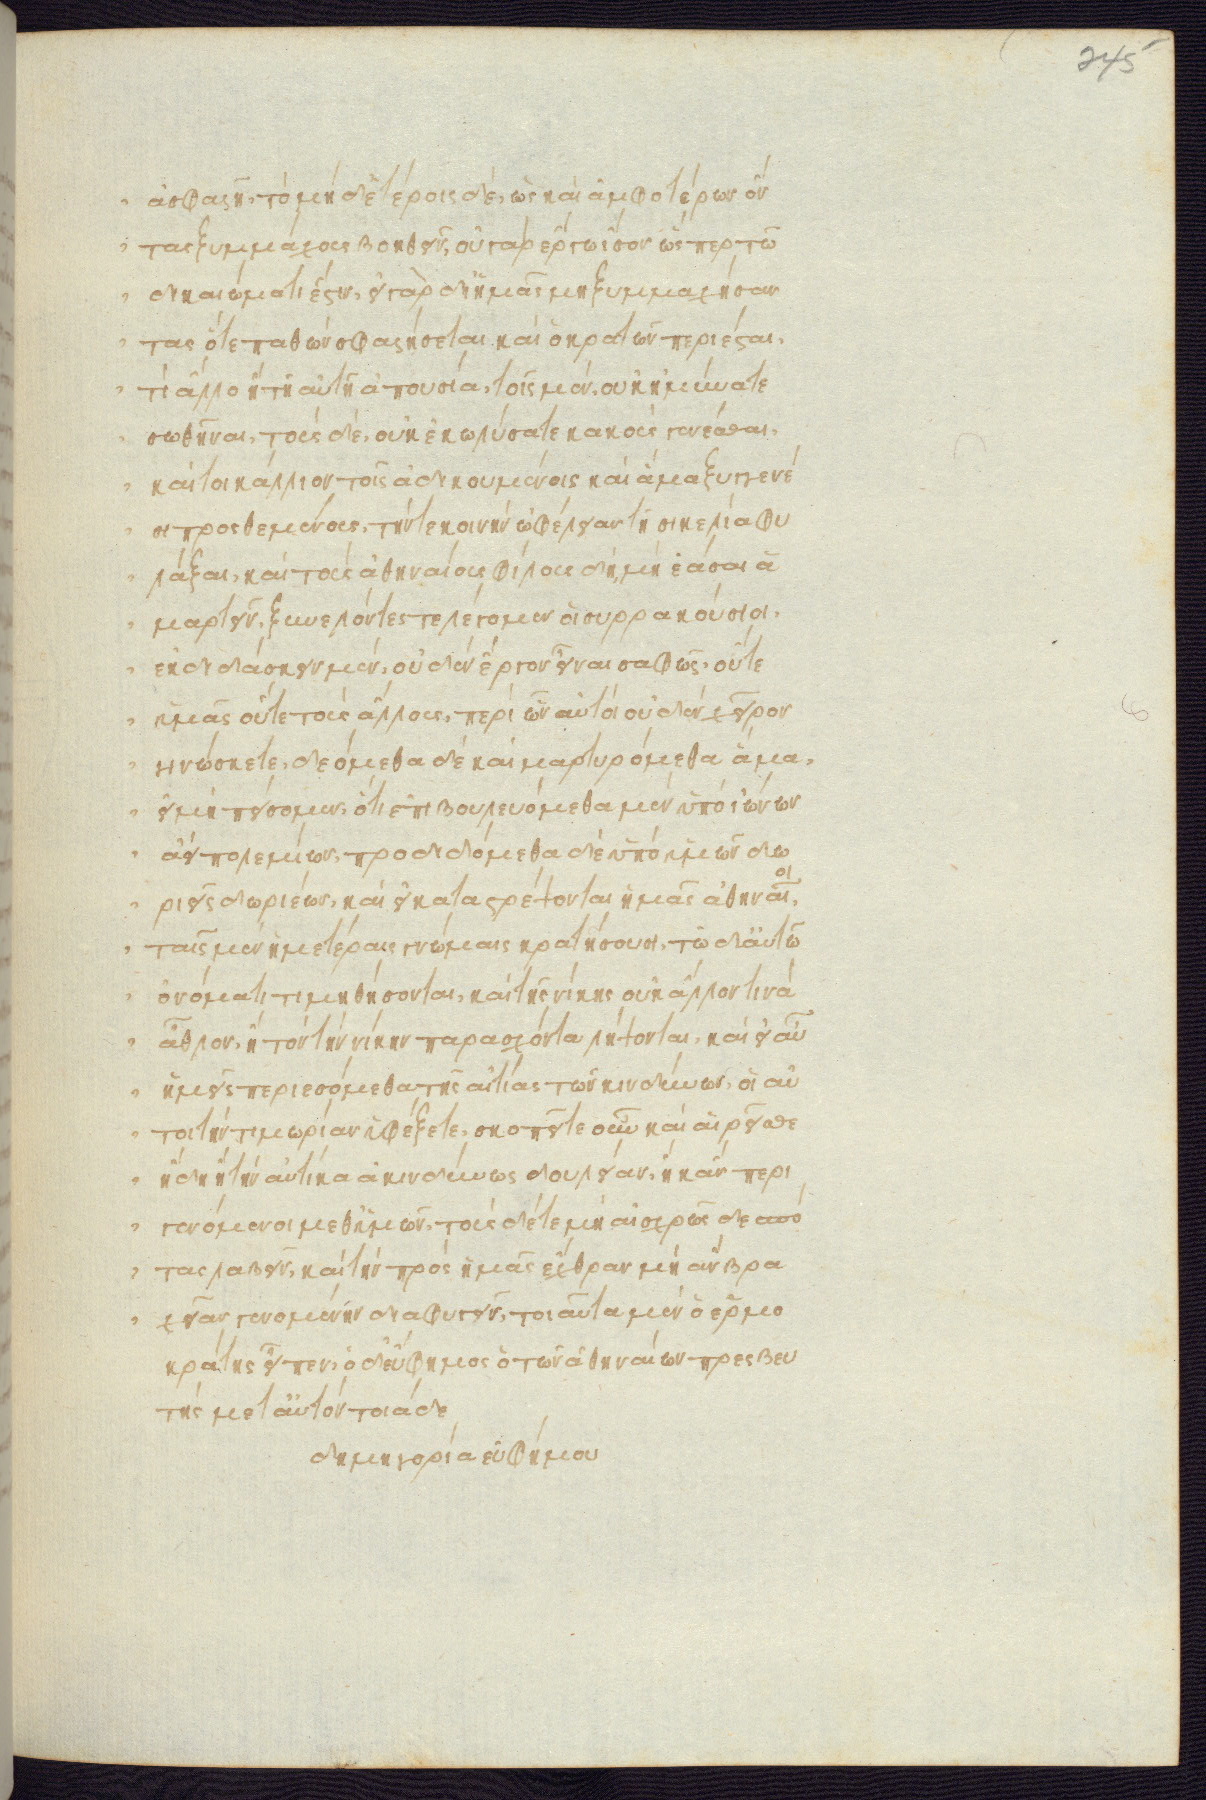 245
ἀσφαλῆ, τὸ μηδετέροις δὲ, ὡς καὶ ἀμφοτέρων ὄν
τας ξυμμάχους βοηθεῖν, οὐ γὰρ ἔργω ἴσον ὥσπερ τῶ
δικαιώματί ἐστιν, εἰ γὰρ δι ἡμᾶς μὴ ξυμμαχήσαν
τας ὅτε παθὼν σφαλήσεται καὶ ὁ κρατῶν περιέσται,
τί ἄλλο ἢ τῆ αὐτῆ ἀπουσία, τοῖς μὲν, οὐκ ἠμύνατε
σωθῆναι, τοὺς δὲ, οὐκ ἐκωλύσατε κακοὺς γενέσθαι,
καίτοι κάλλιον τοῖς ἀδικουμένοις καὶ ἅμα ξυγγενέ
σι προσθεμένους, τήν τε κοινὴν ὠφέλειαν τῆ σικελία φυ
λάξαι, καὶ τοὺς ἀθηναίους φίλους δὴ μὴ ἐᾶσαι ἁ
μαρτεῖν, ξυνελόντες τε λέγομεν οἱ συρρακούσιοι,
ἐκδιδάσκειν μὲν, οὐδὲν ἔργον εἶναι σαφῶς, οὔτε
ὑμᾶς οὔτε τοὺς ἄλλους, περὶ ὧν αὐτοὶ οὐδὲν χεῖρον
γιγνώσκετε, δεόμεθα δὲ καὶ μαρτυρόμεθα ἅμα,
εἰ μὴ πείσομεν, ὅτι ἐπιβουλευόμεθα μὲν ὑπὸ ἰώνων
ἀεὶ πολεμίων, προδιδόμεθα δὲ ὑπὸ ὑμῶν δω
ριεῖς δωριέων, καὶ εἰ καταστρέψονται ἡμᾶς ἀθηναῖοι,
ταῖς μὲν ὑμετέραις γνώμαις κρατήσουσι, τῶ δ αὑτῶ
ὀνόματι τιμηθήσονται, καὶ τῆς νίκης οὐκ ἄλλον τινὰ
ἆθλον, ἢ τὸν τὴν νίκην παρασχόντα λήψονται, καὶ εἰ αὖ
ἡμεῖς περιεσόμεθα, τῆς αἰτίας τῶν κινδύνων, οἱ αὐ
τοὶ τὴν τιμωρίαν ὑφέξετε, σκοπεῖτε οὖν καὶ αἱρεῖσθε
ἤδη ἢ τὴν αὐτίκα ἀκινδύνως δουλείαν, ἢ κἂν περι
γενόμενοι μεθ ἡμῶν, τούς δέ τε μὴ αἰσχρῶς δεσπό
τας λαβεῖν, καὶ τὴν πρὸς ἡμᾶς ἔχθραν μὴ ἂν βρα
χεῖαν γενομένην διαφυγεῖν, τοιαῦτα μὲν ὁ ἑρμο
κράτης εἶπεν, ὁ δ εὔφημος ὁ τῶν ἀθηναίων πρεσβευ
τὴς μετ αὐτὸν τοιάδε
δημηγορία εὐφήμου